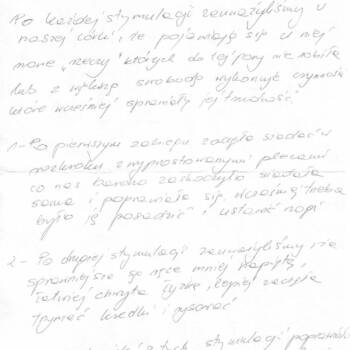 Po każdej stymulacji zauważyliśmy u
naszej córki, że pojawiają się u niej
nowe „rzeczy" których do tej pory nie robiła
lub z większą swobodą wykonuje czynności
które wcześniej sprawiały jej trudność.
1- Po pierwszym zabiegu zaczęła siadać w
rozkroku z wyprostowanymi plecami
co nas bardzo zaskoczyło siadała
sama i poprawiała się, wcześniej trzeba
było ją posadzić i ustawić nogi
2 - Po drugiej stymulacji zauważyliśmy że
sprawniejsze są ręce mniej napięte,
łatwiej chwyta łyżkę, lepiej zaczęła
trzymać kredki i rysować
stymulacji poprawiło